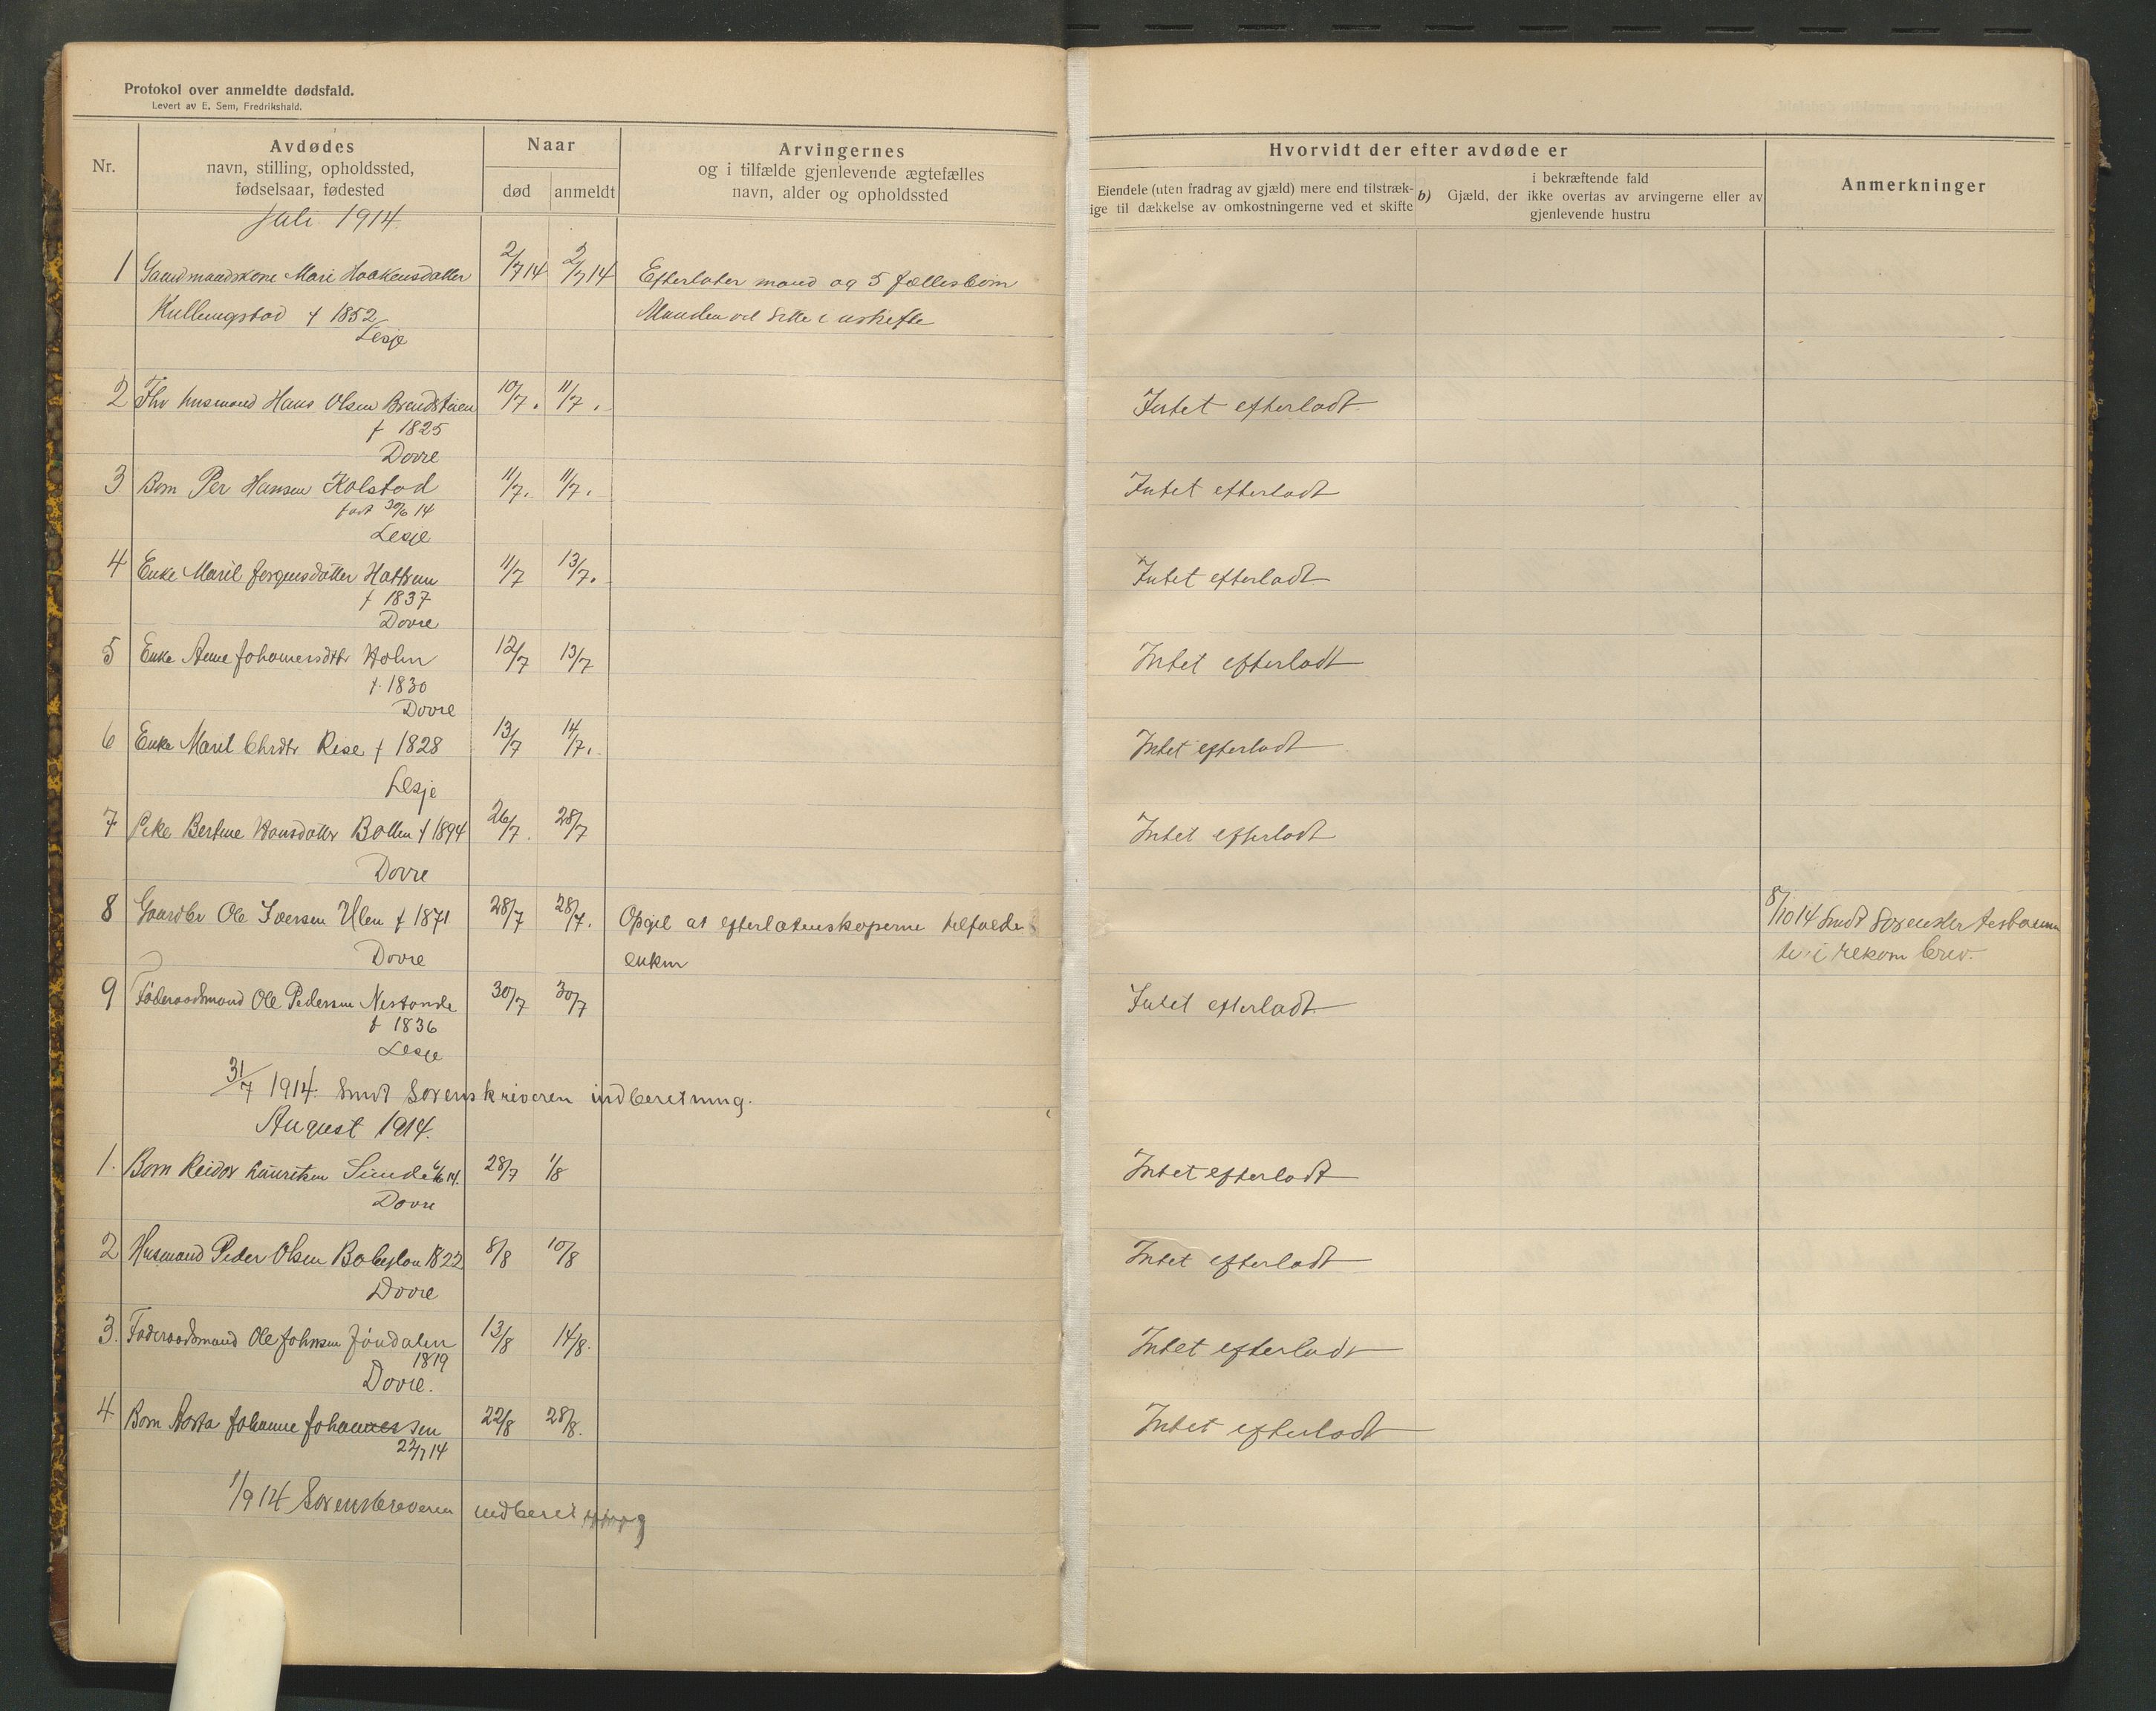 Protokol over anmeldte dødsfald.
Levert av E. Sem, Fredrikshald.
Nr.
Avdødes
navn, stilling, opholdssted,
fødselsaar, fødested
Naar
død
anmeldt
Arvingernes
og i tilfælde gjenlevende ægtefælles
navn, alder og opholdssted
Hvorvidt der efter avdøde er
Eiendele (uten fradrag av gjæld) mere end tilstræk-
ige til dækkelse av omkostningerne ved et skifte
i bekræftende fald
b) Gjæld, der ikke overtas av arvingerne eller av
gjenlevende hustru
Anmerkninger
Juli 1914
1 Gaardmandskone Mari Haakensdatter 2/7 14 2/7 14 Efterlater mand og 5 fællesbørn
Kullungstad f 1852 Manden vil sitte i uskifte
Lesje
2 Fhv husmand Hans Olsen 10/7. 11/7. Intet efterladt
f 1825
Dovre
3 Barn Per Hansen Kolstad 11/7. 11/7. Intet efterladt
født 30/6 14
Lesje
4 Enke Marit Jørgensdatter Hattrem 11/7 13/7. Intet efterladt
f 1837
Dovre
5 Enke Anne Johannesdtr Holm 12/7 13/7 Intet efterladt
f. 1830
Dovre
6 Enke Marit Chrdtr Rise f 1828 13/7 14/7. Intet efterladt
Lesje
7 Pike Bertine Hansdatter Botten f 1894 26/7. 28/7 Intet efterladt
Dovre
8 Gaardbr Ole Iversen Ulen f 1871 28/7 28/7. Opgit at efterlatenskaperne tilfalder 8/10 14 Sendt Sorenskr testamen
Dovre enken te i rekom brev.
9 Føderaadsmand Ole Pedersen Nestande 30/7 30/7 Intet efterladt
f 1836
Lesje
31/7 1914. Sendt Sorenskriveren indberetning.
August 1914.
1. Barn Reidar Lauritsen 6/6 14. 28/7 1/8 Intet efterladt
Dovre
2 Husmand Peder Olsen Babylon 1822 8/8 10/8 Intet efterladt
Dovre
3. Føderaadsmand Ole Johnsen Jøndalen 13/8 14/8. Intet efterladt
1819
Dovre.
4. Barn Aasta Johanne Johannessen 22/8 28/8. Intet efterladt
22/7 14
1/9 14 Sorenskriveren indberet